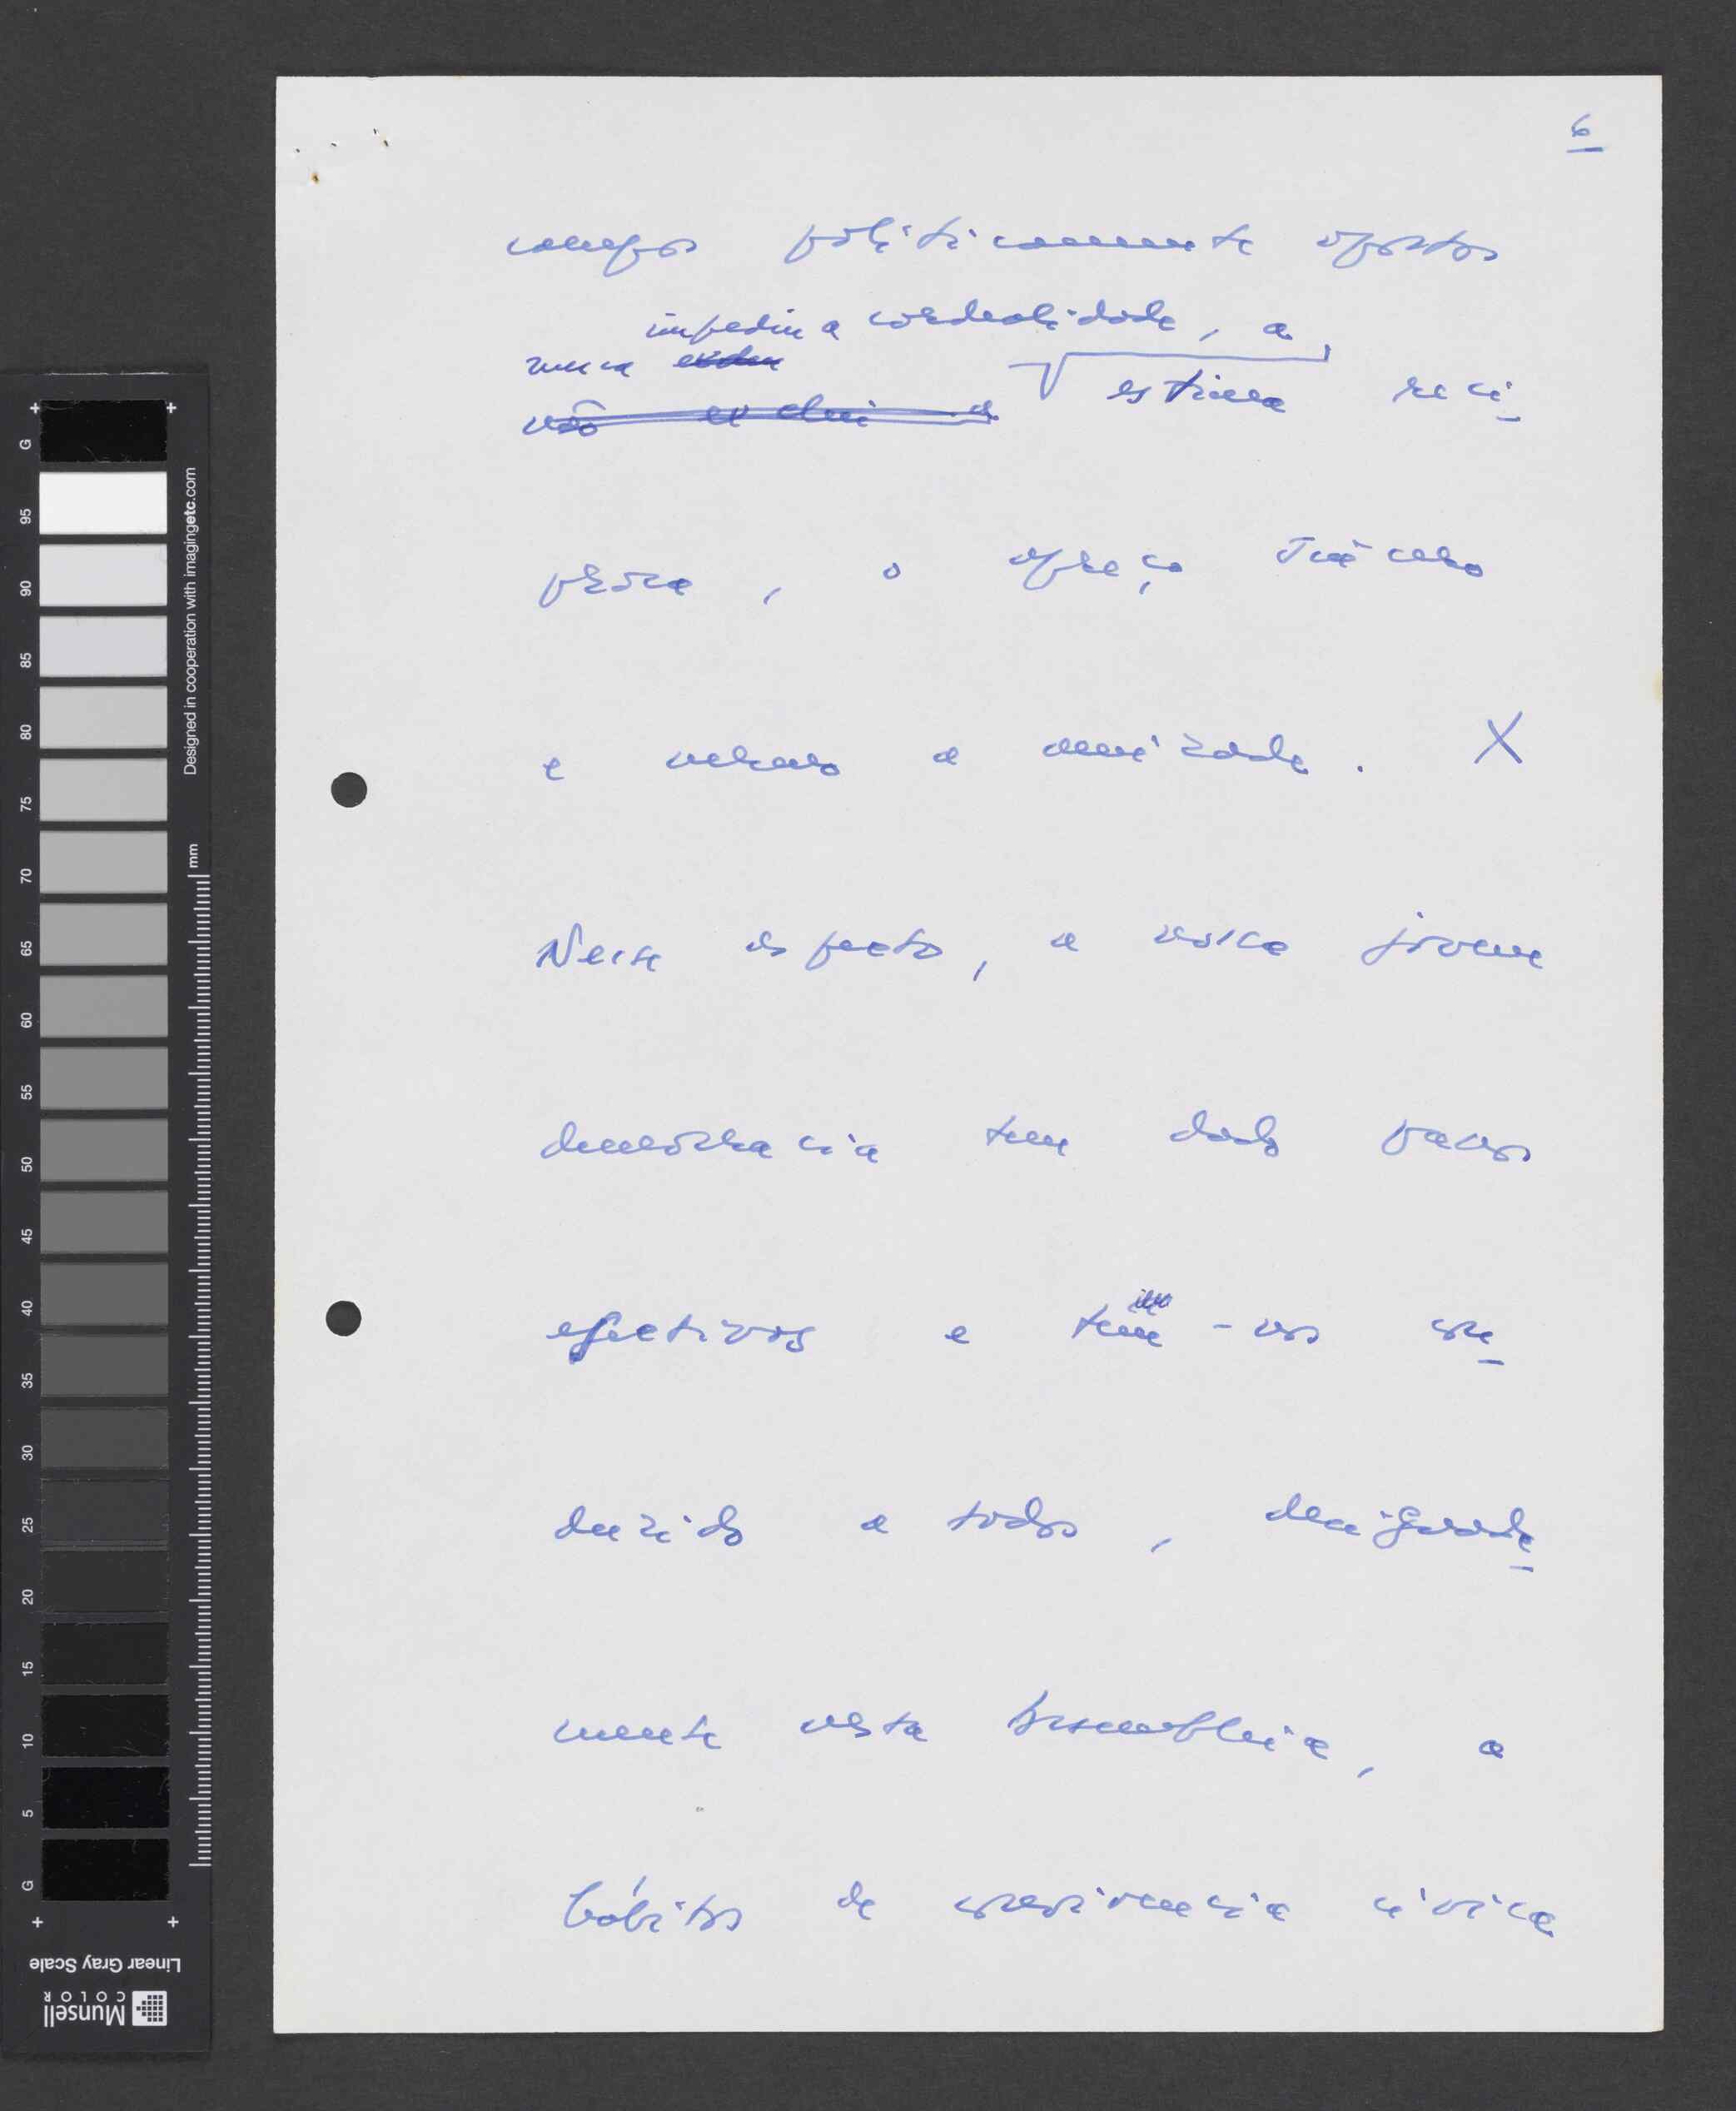 6
campos politicamente opostos
impediu a cordealidade, a
nunca
não exclui a estima recí-
proca, o apreço mútuo
e mesmo a amizade. X
Neste aspecto, a nossa jovem
democracia tem dado passos
efectivos e tem-nos con-
duzido a todos, designada-
mente nesta Assembleia, a
hábitos de convivencia cívica
G
95
90
85
80
75
70
65
60
55
50
45
40
35
30
25
20
15
10
5
G
mm
Designed in cooperation with imagingetc.com
Linear Gray Scale
Munsell
COLOR